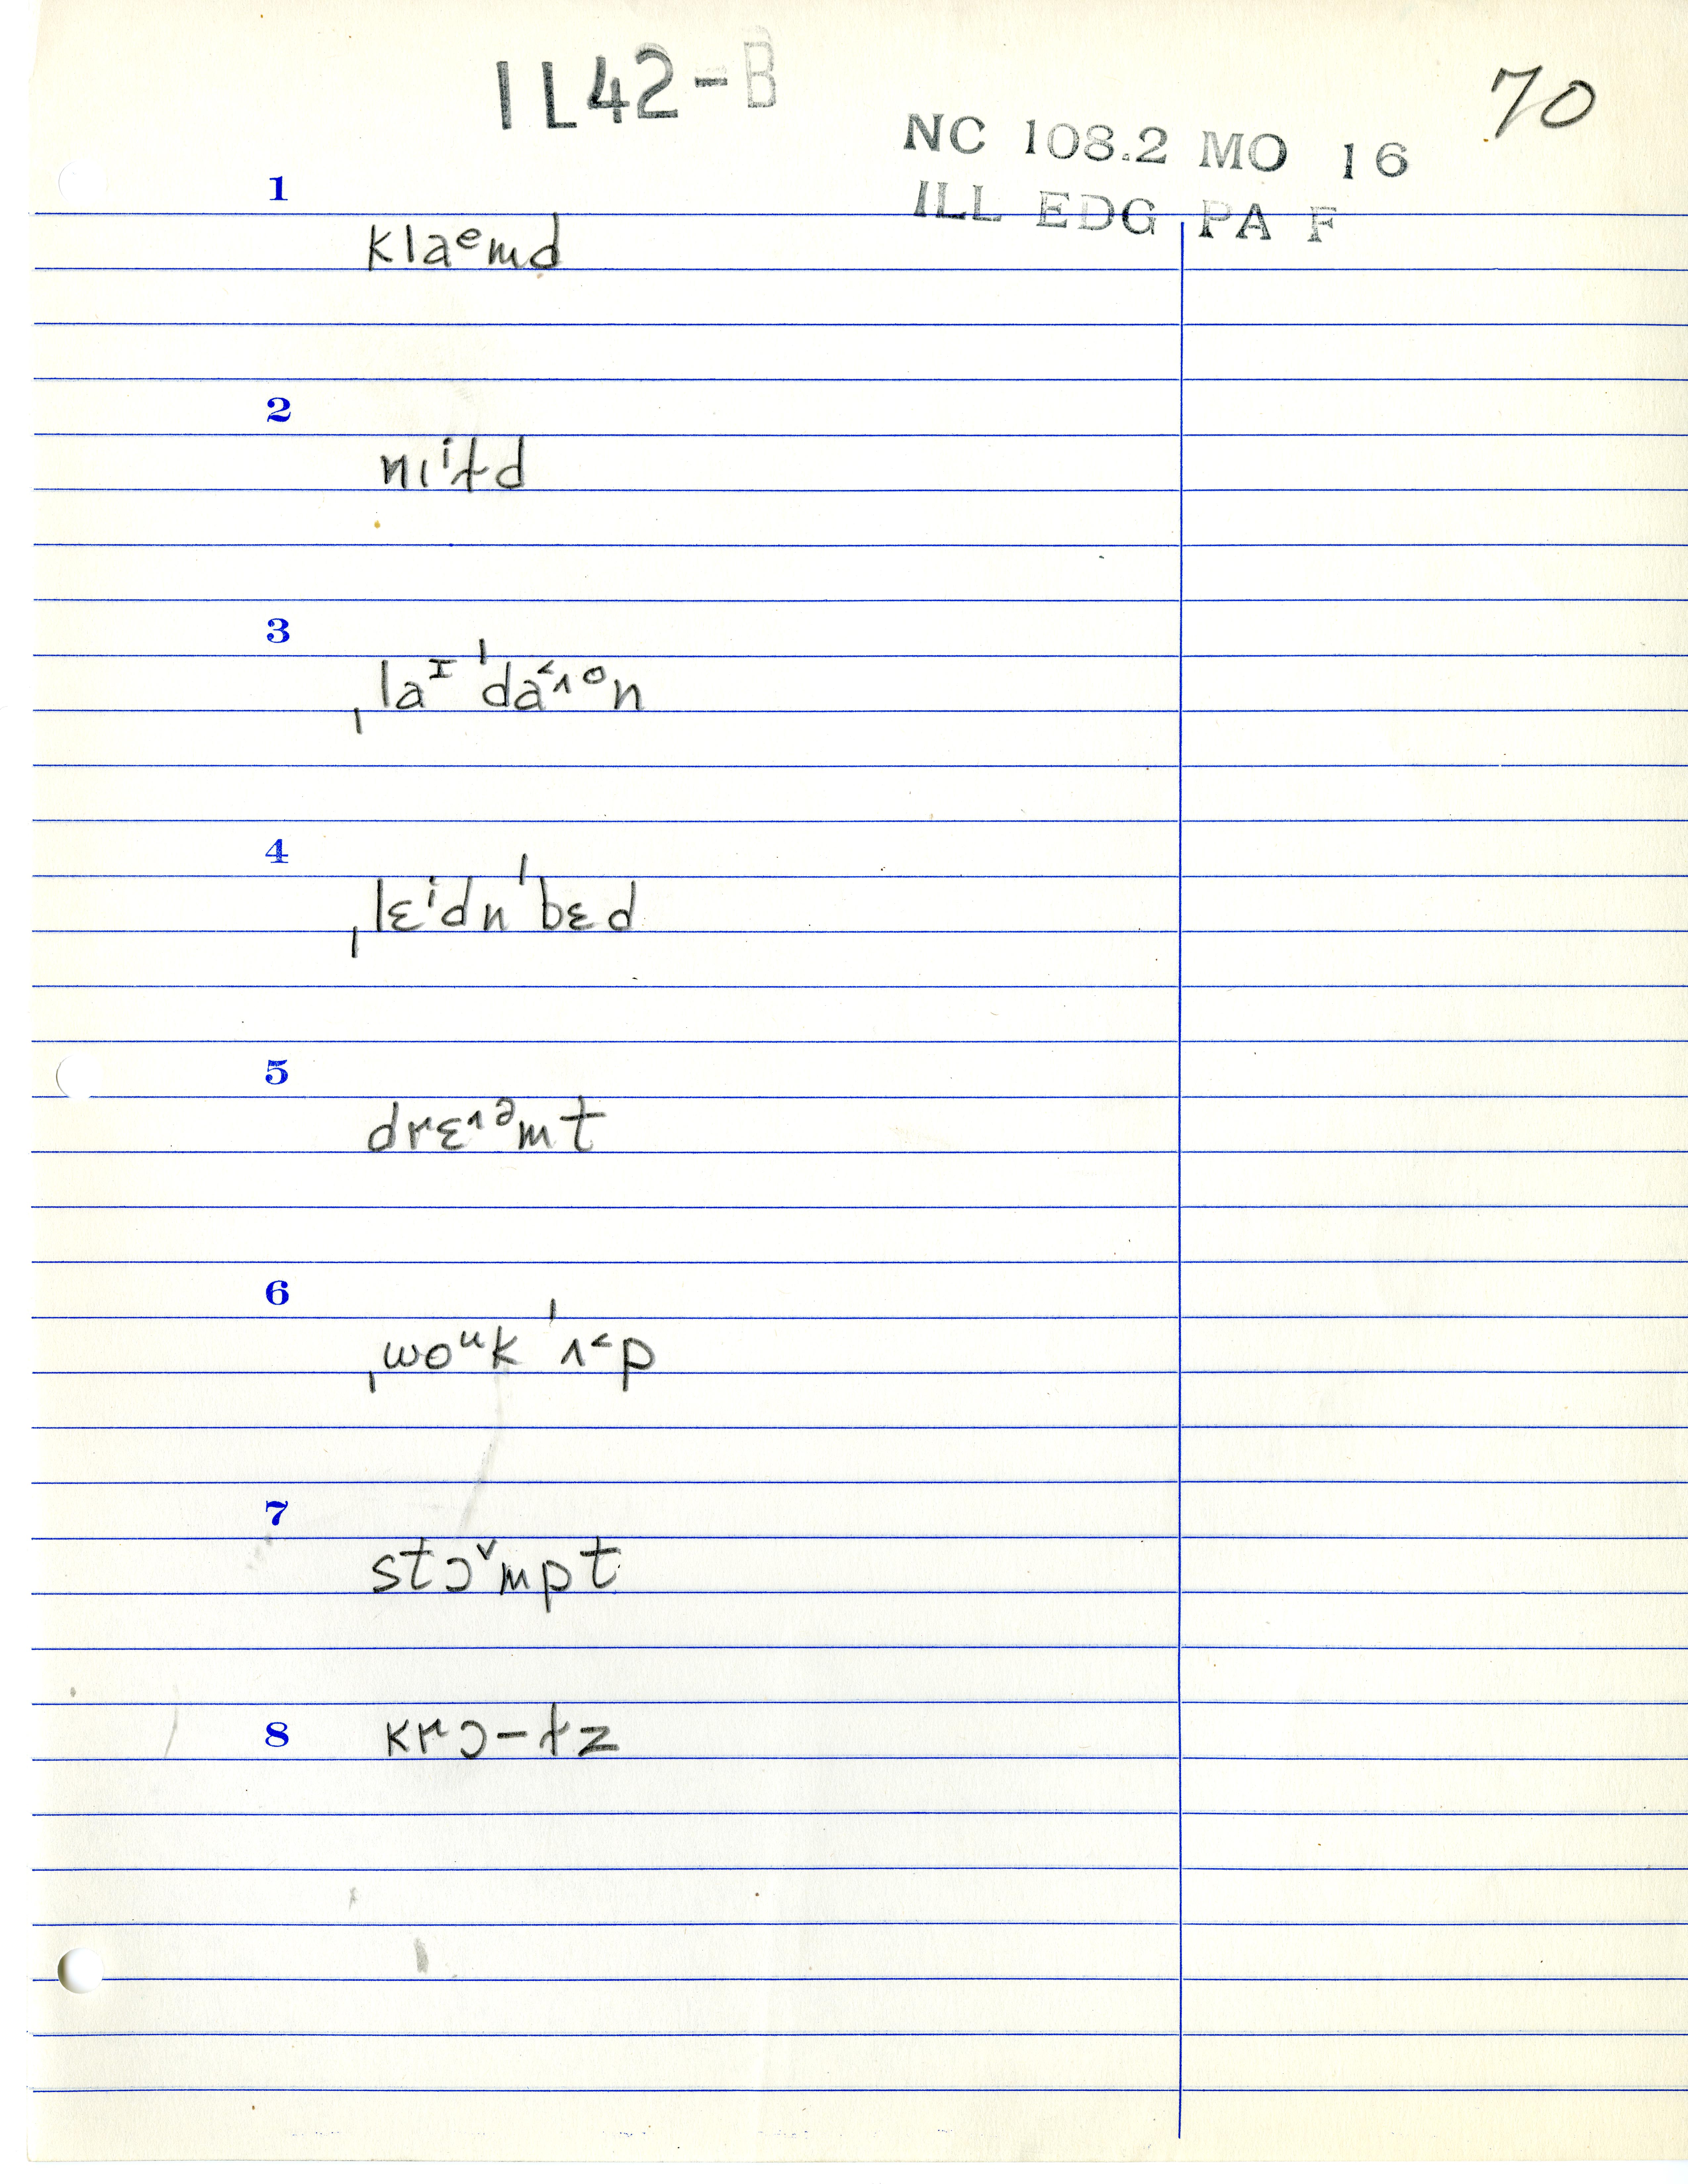 IL42-B
70
NC 108.2 MO 16
ILL EDG PA F
1
klaᵉmd
2
nıⁱt̬d
3
ˌlaᴵˈda˂˄ᵒn
4
ˌlɛⁱdnˈbɛd
5
drɛ˄ᵊmt
6
ˌwoᵘkˈʌ˂p
7
stɔ˅mpt
8 krɔ-t̬z